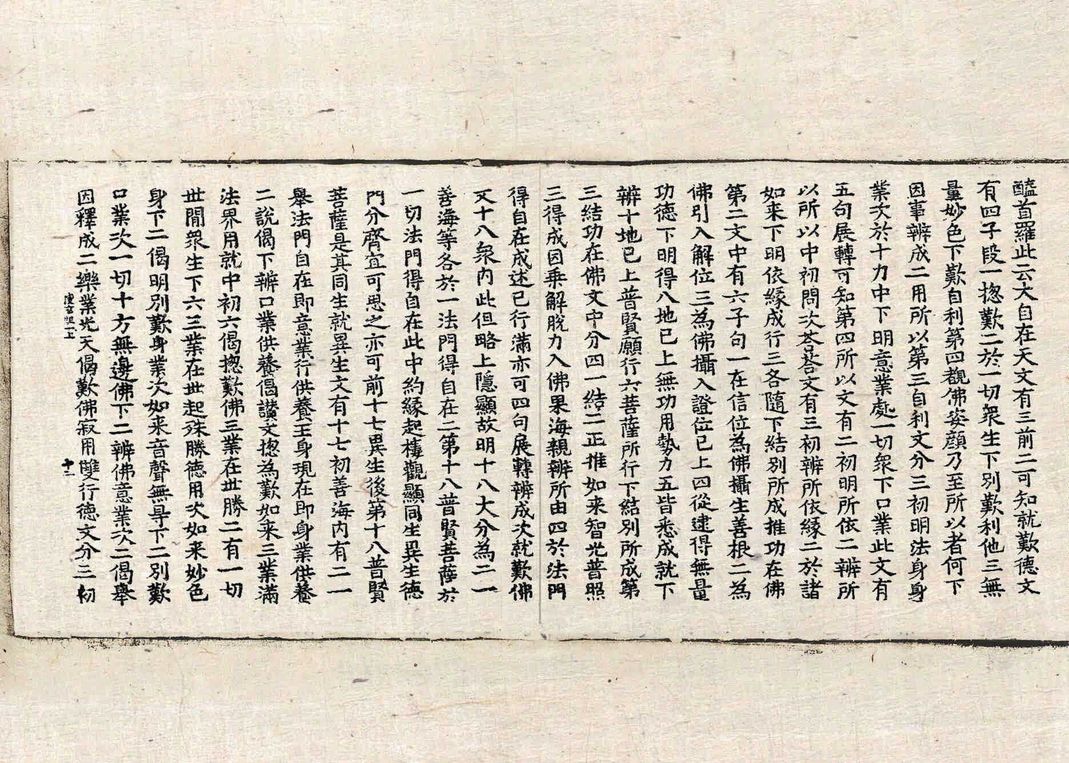 醯首羅此云大自在天文有三前二可知就歎德文
有四子段一揔歎二於一切衆生下別歎利他三無
量妙色下歎自利第四覩佛安顔乃至所以者何下
因事辨成二用所以第三自利文分三初明法身身
業次於十力中下明意業處一切衆下口業此文有
五句展轉可知第四所以文有二初明所依二辨所
以所以中初問次荅荅文有三初辨所依緣二於諸
如来下明依緣成行三各隨下結別所成推功在佛
第二文中有六子句一在信位為佛攝生善根二為
佛引入解位三為佛攝入證位已上四從逮得無量
功德下明得八地已上無功用勢力五皆悉成就下
辨十地已上普賢願行六菩薩所行下結別所成第
三結功在佛文中分四一結二正推如来智光普照
三得成因乗解脫力入佛果海親辨所由四於法門
得自在成述已行滿亦可四句展轉辨成次就歎佛
文十八衆内此但略上隱顯故明十八大分為二一
善海等各於一法門得自在二第十八普賢菩薩於
一切法門得自在此中約緣起樓觀顯同生異生德
門分齊宜可思之亦可前十七異生後第十八普賢
菩薩是其同生就異生文有十七初善海内有二一
舉法門自在即意業行供養王身現在即身業供養
二說偈下辨口業供養偈讃文揔為歎如来三業滿
法界用就中初六偈揔歎佛三業在世勝二有一切
世閒衆生下六三業在世起殊勝德用次如来妙色
身下二偈明別歎身業次如来音聲無㝵下二別歎
口業次一切十方無邊佛下二辨佛意業次二偈舉
因釋成二樂業光天偈歎佛寂用雙行德文分三初
十二